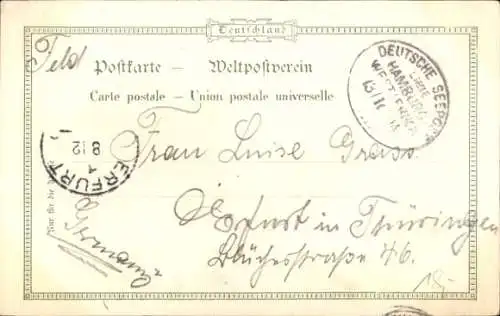 Deutschland
Feld
Postkarte — Weltpostverein
Carte postale — Union postale universelle
DEUTSCHE SEEPOST
LINIE
HAMBURG
WESTAFRIKA
ERFURT
1
8 12
Frau Luise Grass
Erfurt in Thüringen
Blücherstraße 46.
Germany
Nur für die